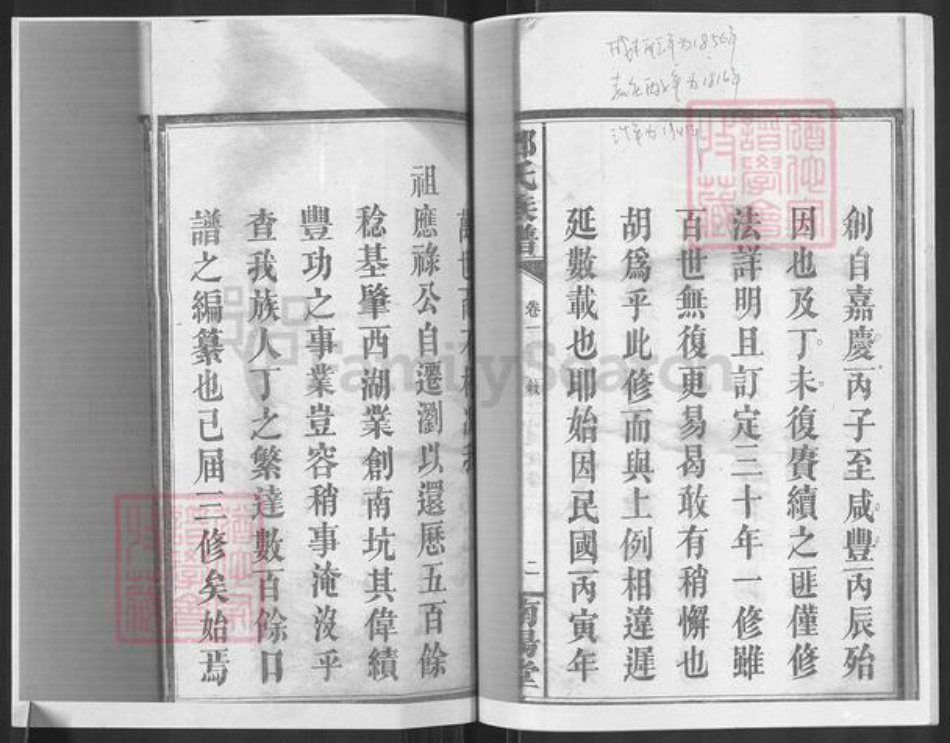 創自嘉慶丙子至咸豐丙辰殆
因也及丁未復賡續之匪僅修
法詳明且訂定三十年一修雖
百世無復更易曷敢有稍懈也
胡爲乎此修而與上例相違遲
延數載也耶始因民國丙寅年
氏族譜
卷一
敘
二
南陽堂
祖應祿公自遷瀏以還歷五百餘
稔基肇西湖業創南坑其偉績
豐功之事業豈容稍事淹沒乎
查我族人丁之繁達數百餘口
譜之編纂也已屆三修矣始焉
FamilySearch